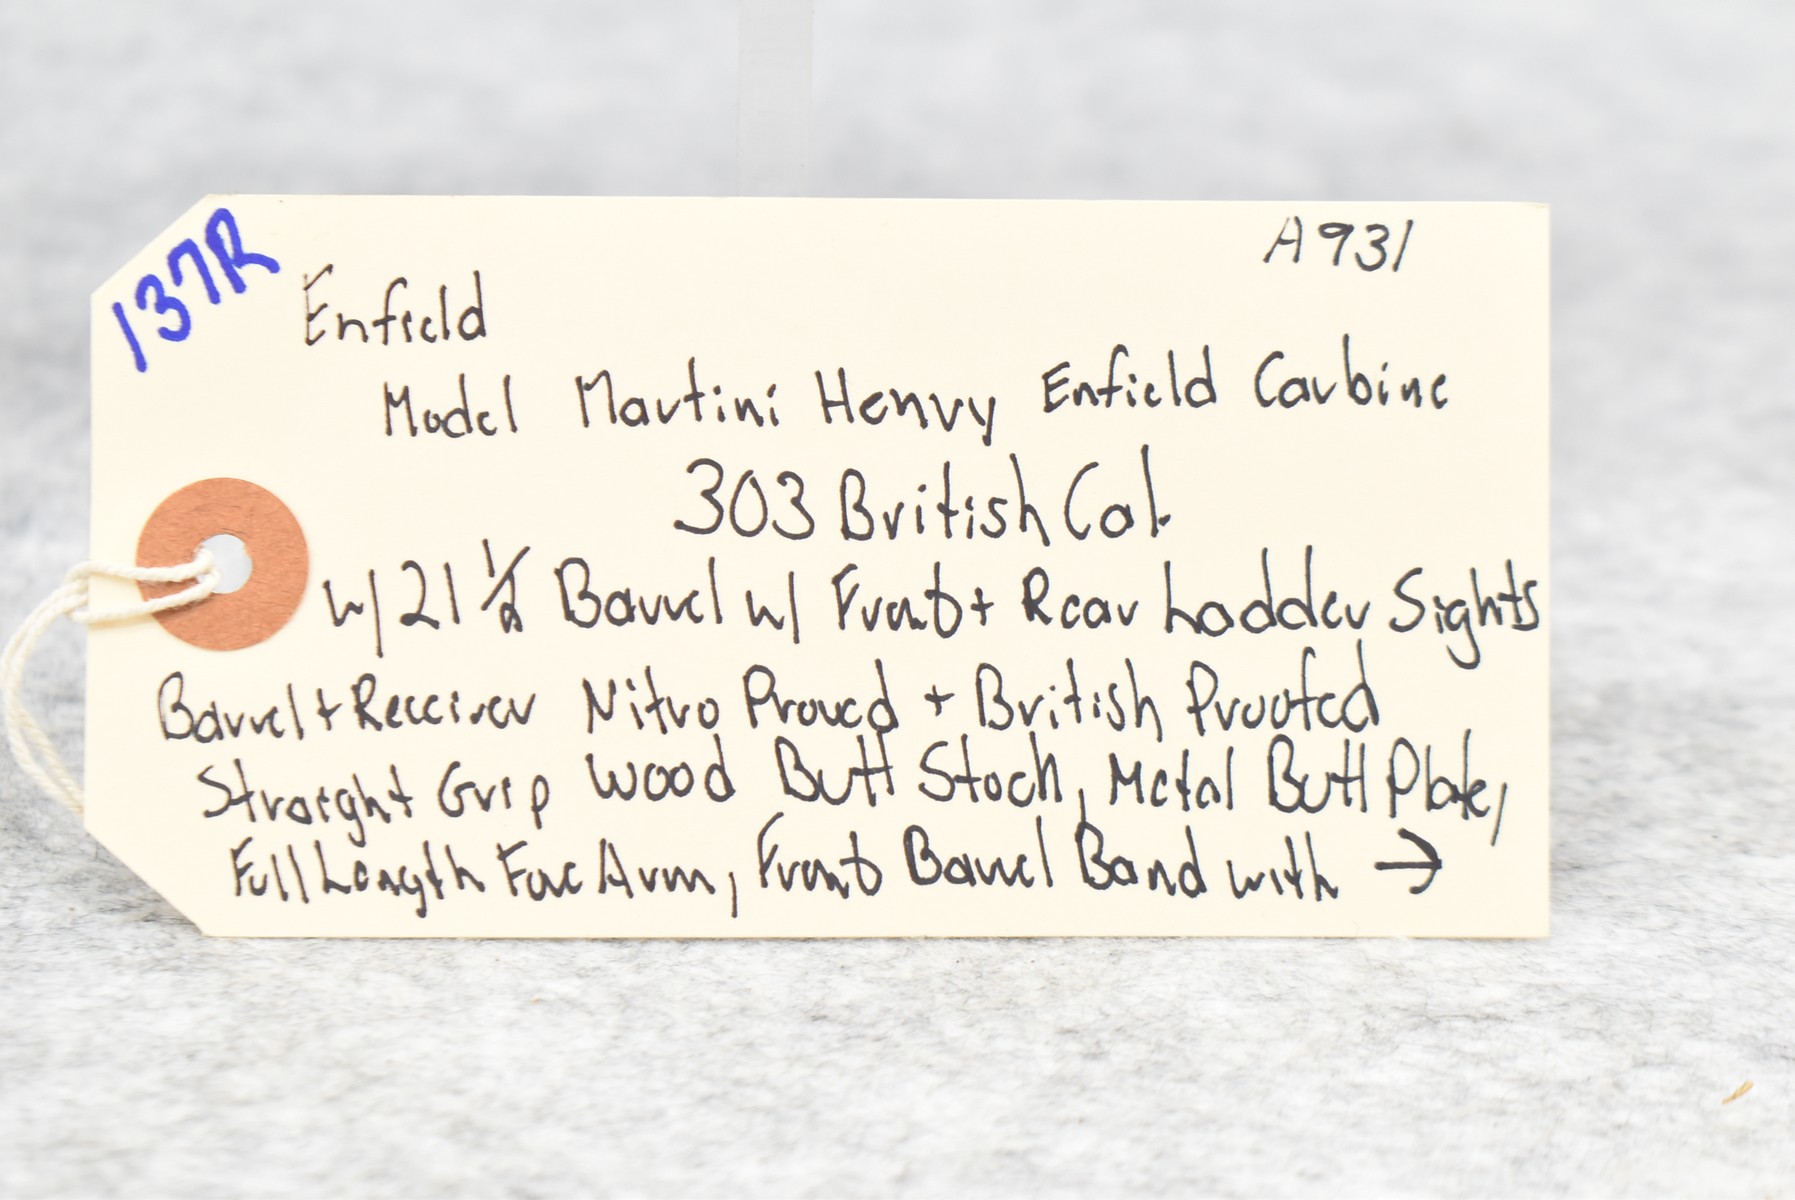 137R
A931
Enfield
Model Martini Henry Enfield Carbine
303 British Cal.
w/ 21 1/2 Barrel w/ Front + Rear Ladder Sights
Barrel + Receiver Nitro Proved + British Proofed
Straight Grip Wood Butt Stock, Metal Butt Plate,
Full Length Fore Arm, Front Barrel Band with →